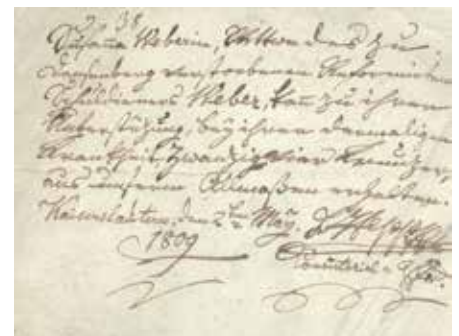 38
Susanna Weberin, Wittwe des zu
verstorbenen Reformirten
Schuldieners Weber, kan zu ihrer
Unterstüzung, bey ihrer dermaligen
Krankheit, zwanzig vier Kreuzer,
aus unserm Allmosen erhalten.
Kaiserslautern, den 2ten May.
1809